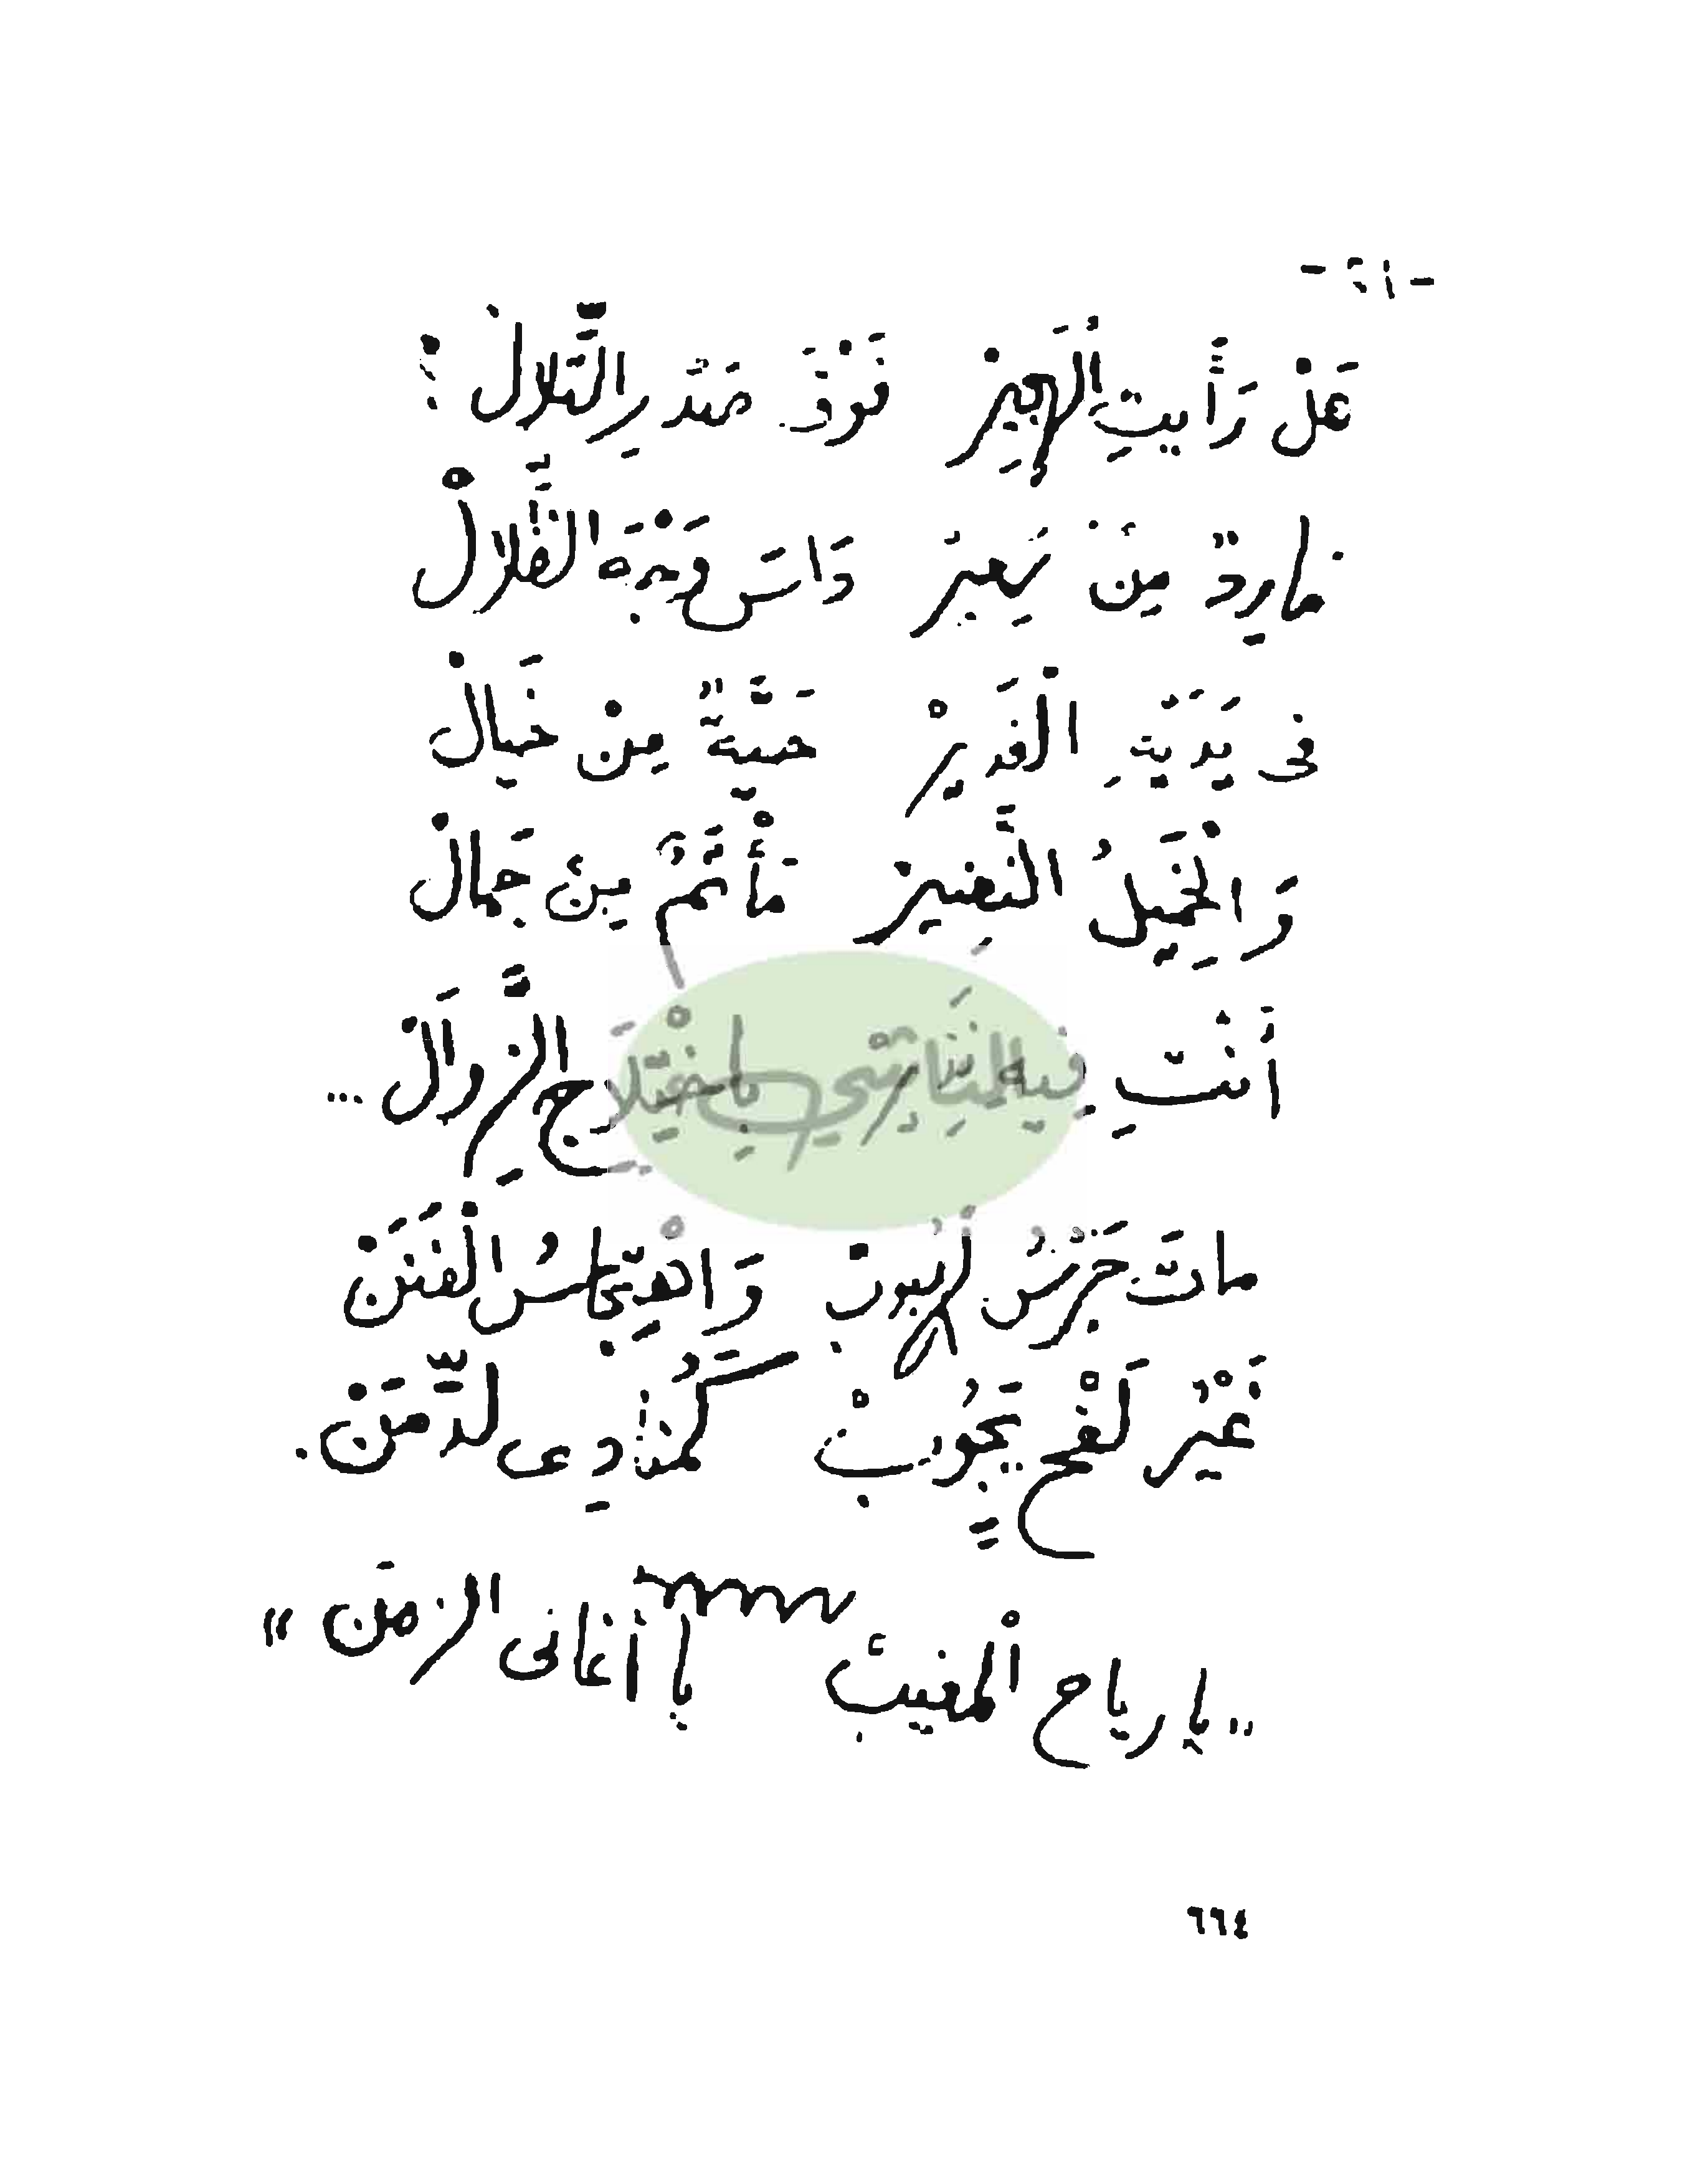 - ٢١ -
هَلْ رَأَيتِ الْهَجِيرْ فَوْقَ صَدْرِ التِّلَالْ ؟
مَارِدٌ مِنْ سَعِيرْ دَاسَ وَجْهَ الظِّلَالْ
فى يَدَيَّةِ الْغَدِيرْ حَيَّةٌ مِنْ خَيالْ
وَالْخَمِيلُ النَّضِيرْ مَأْتَمٌ مِنْ جَمالْ
أَنْتِ فِيهِ بِاخْتِلَاجِ الزَّوَالْ ...
ماتَ جَرْسُ الْهُبُوبْ وَاهْتِجَاسُ الْفَنَنْ
غَيْرُ لَفْحٍ يَجُوبْ كَمُنَادِى الدِّمَنْ .
" يا رياح الْمغيبْ يا أغانى الزمَن "
٦٦٤